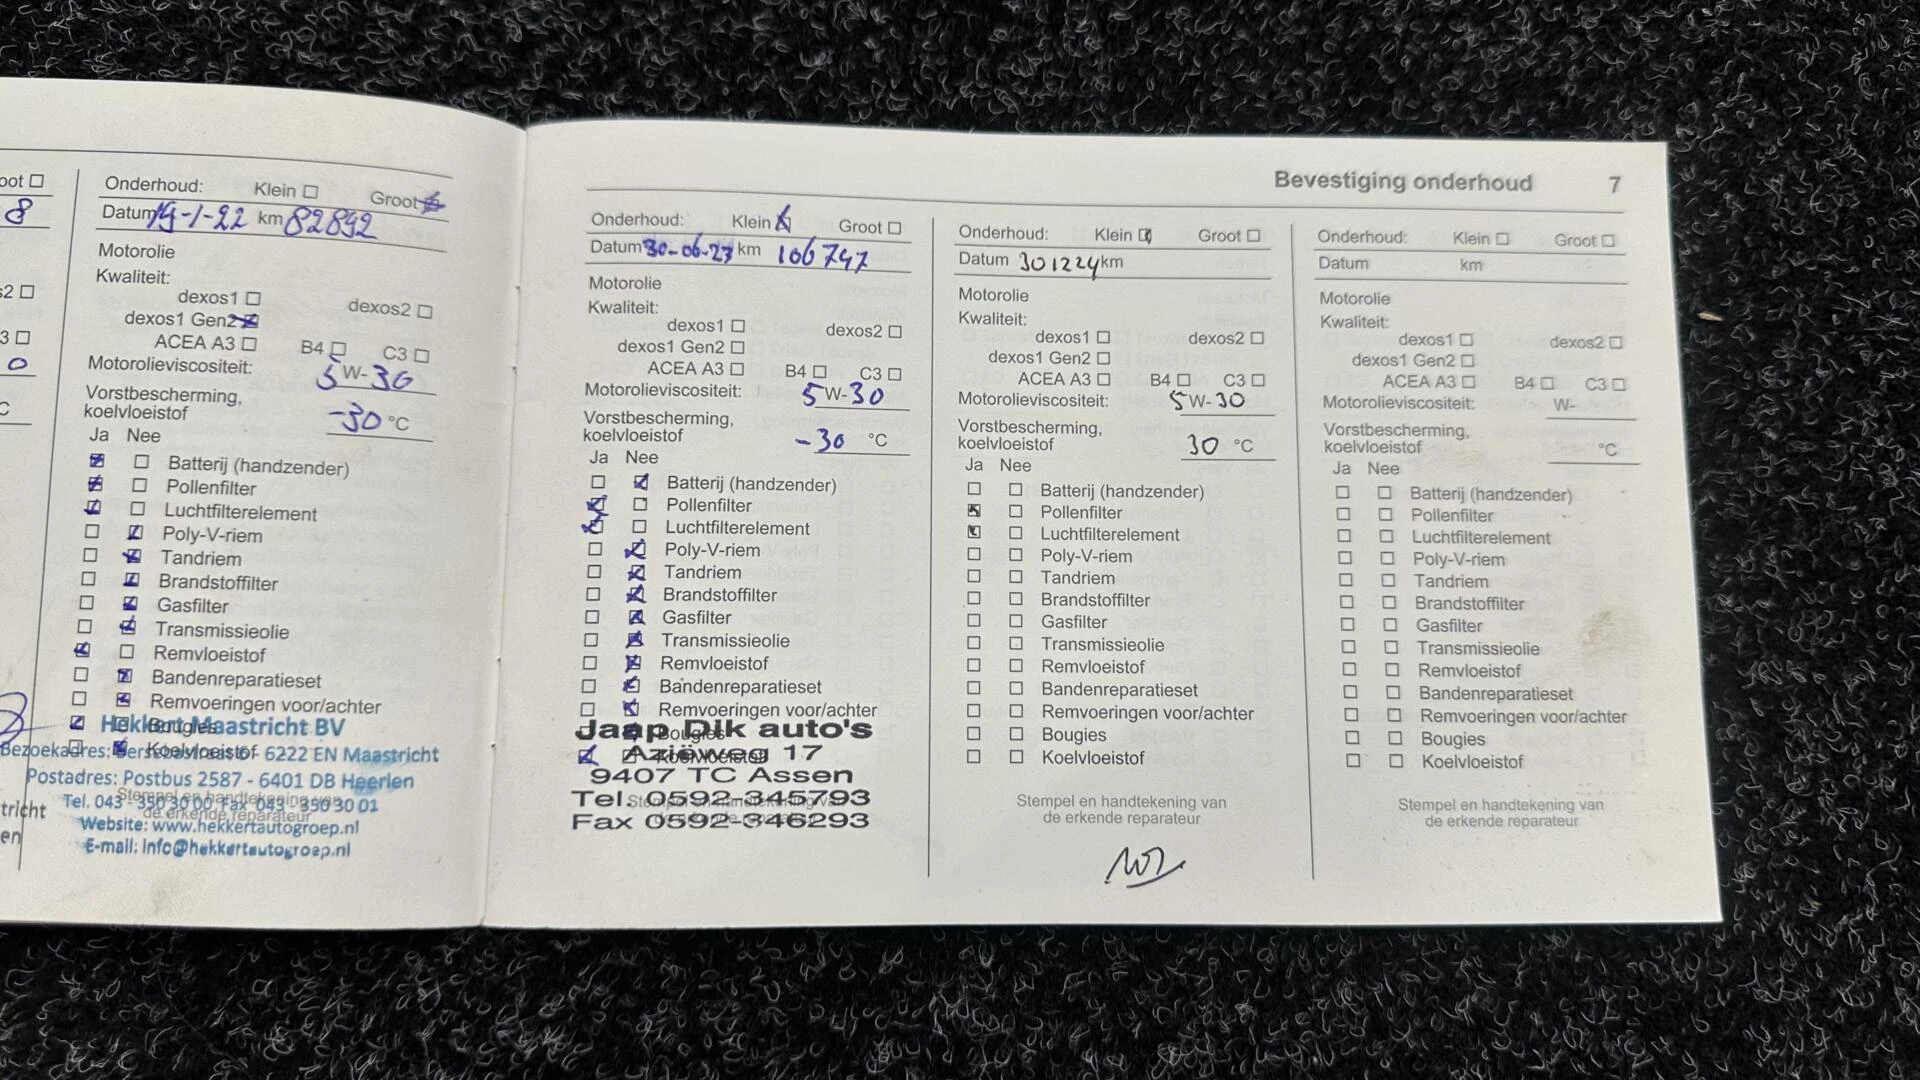 oot
8
s2
3
0
C
tricht
en
Onderhoud: Klein Groot
Datum 19-1-22 km 82892
Motorolie
Kwaliteit:
dexos1 dexos2
dexos1 Gen2
ACEA A3 B4 C3
Motorolieviscositeit: 5 W-30
Vorstbescherming,
koelvloeistof -30 °C
Ja Nee
Batterij (handzender)
Pollenfilter
Luchtfilterelement
Poly-V-riem
Tandriem
Brandstoffilter
Gasfilter
Transmissieolie
Remvloeistof
Bandenreparatieset
Remvoeringen voor/achter
Bougies
Koelvloeistof
Stempel en handtekening van
de erkende reparateur
Hekkert Maastricht BV
Bezoekadres: 6222 EN Maastricht
Postadres: Postbus 2587 - 6401 DB Heerlen
Tel. 043 - 350 30 00 Fax 043 - 350 30 01
Website: www.hekkertautogroep.nl
E-mail: info@hekkertautogroep.nl
Bevestiging onderhoud 7
Onderhoud: Klein Groot
Datum 30-06-23 km 106747
Motorolie
Kwaliteit:
dexos1 dexos2
dexos1 Gen2
ACEA A3 B4 C3
Motorolieviscositeit: 5 W-30
Vorstbescherming,
koelvloeistof -30 °C
Ja Nee
Batterij (handzender)
Pollenfilter
Luchtfilterelement
Poly-V-riem
Tandriem
Brandstoffilter
Gasfilter
Transmissieolie
Remvloeistof
Bandenreparatieset
Remvoeringen voor/achter
Bougies
Koelvloeistof
Stempel en handtekening van
de erkende reparateur
Jaap Dik auto's
Aziëweg 17
9407 TC Assen
Tel. 0592-345793
Fax 0592-346293
Onderhoud: Klein Groot
Datum 301224 km
Motorolie
Kwaliteit:
dexos1 dexos2
dexos1 Gen2
ACEA A3 B4 C3
Motorolieviscositeit: 5 W-30
Vorstbescherming,
koelvloeistof 30 °C
Ja Nee
Batterij (handzender)
Pollenfilter
Luchtfilterelement
Poly-V-riem
Tandriem
Brandstoffilter
Gasfilter
Transmissieolie
Remvloeistof
Bandenreparatieset
Remvoeringen voor/achter
Bougies
Koelvloeistof
Stempel en handtekening van
de erkende reparateur
Onderhoud: Klein Groot
Datum km
Motorolie
Kwaliteit:
dexos1 dexos2
dexos1 Gen2
ACEA A3 B4 C3
Motorolieviscositeit: W-
Vorstbescherming,
koelvloeistof °C
Ja Nee
Batterij (handzender)
Pollenfilter
Luchtfilterelement
Poly-V-riem
Tandriem
Brandstoffilter
Gasfilter
Transmissieolie
Remvloeistof
Bandenreparatieset
Remvoeringen voor/achter
Bougies
Koelvloeistof
Stempel en handtekening van
de erkende reparateur